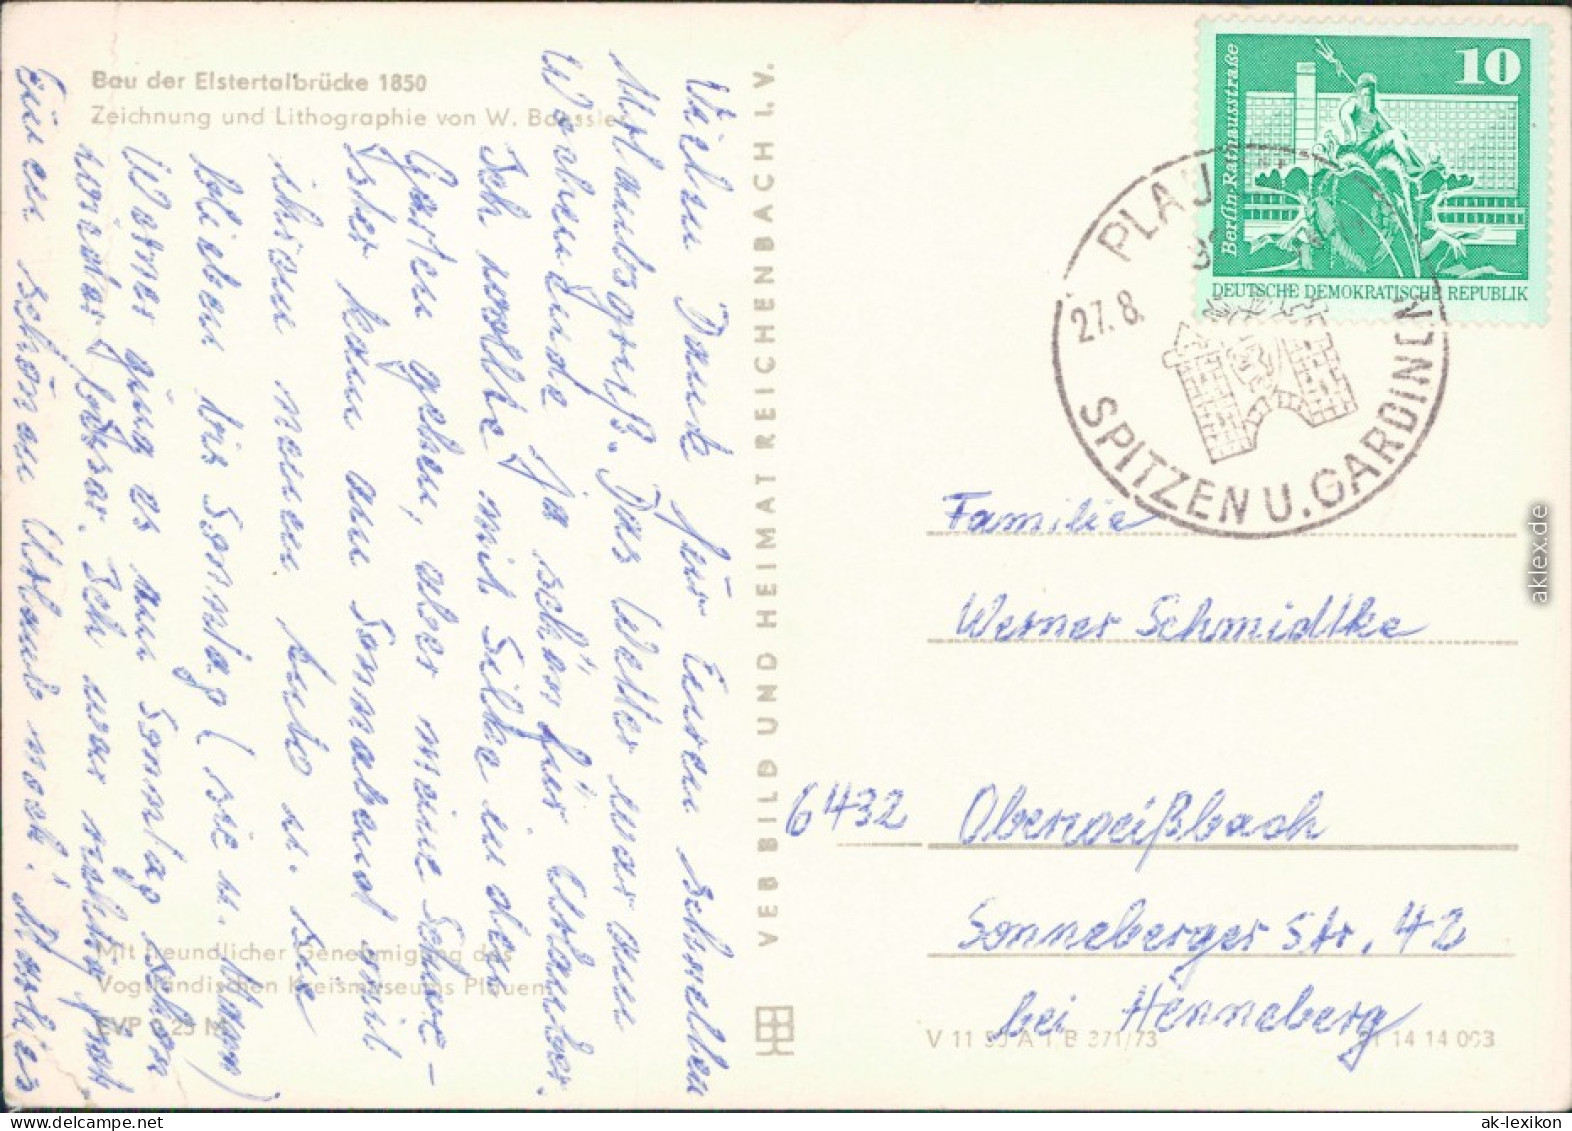 Bau der Elstertalbrücke 1850
Zeichnung und Lithographie von W. Baessler
Vielen Dank für Euren schnellen
Urlaubsgruß. Das Wetter war am
Wochenende ja schön für Urlauber.
Ich wollte mit Silke in den
Garten gehen, aber meine Schwe-
ster kam am Sonnabend mit
ihrem neuen Auto u. sie
blieben bis Sonntag (sie u. Mann)
Warner ging es am Sonntag schon
wieder besser. Ich war richtig froh.
Einen schönen Urlaub noch! Marlies
Mit freundlicher Genehmigung des
Vogtländischen Kreismuseums Plauen
EVP 0,25 M
VEB BILD UND HEIMAT REICHENBACH I. V.
10
Berlin-Rathausstraße
DEUTSCHE DEMOKRATISCHE REPUBLIK
PLAU
27. 8.
SPITZEN U. GARDINEN
Familie
Werner Schmidtke
6432 Oberweißbach
Sonneberger Str. 42
bei Henneberg
V 11 50 A 1 B 371/73 01 14 14 093
aklex.de
ak-lexikon